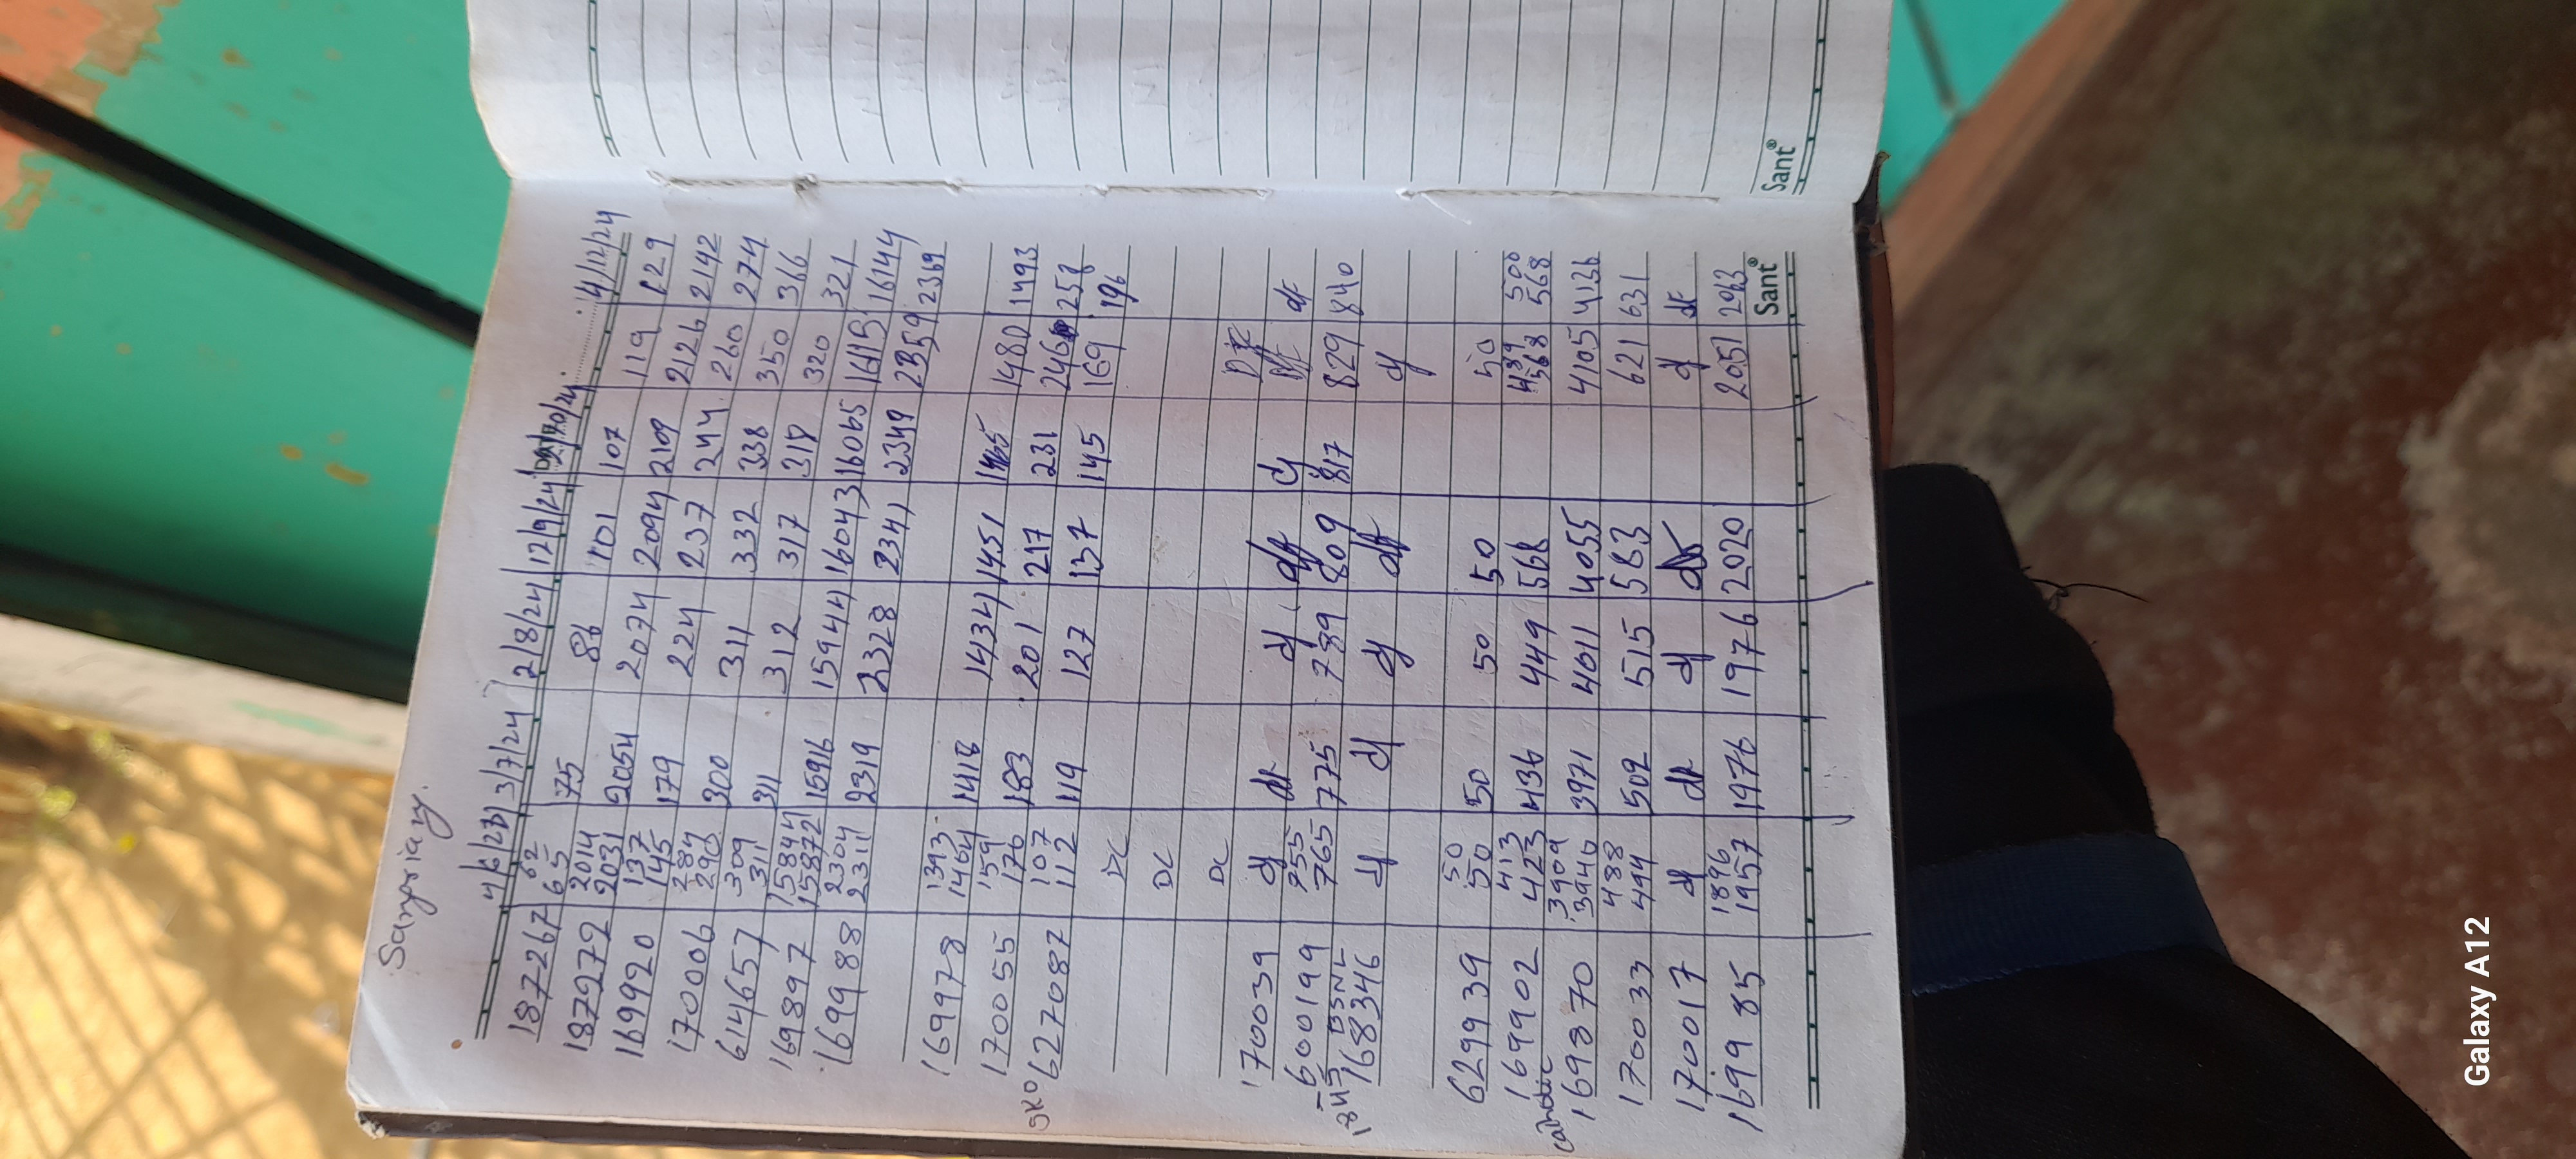 Sampriary.
4/6/23 3/7/24 2/8/24 12/9/24 4/12/24
187267 62 65 75 86 101 107 119 129
187272 2014 2031 2054 2074 2094 2109 2126 2142
169920 137 145 179 224 237 244 260 274
170006 284 290 300 311 332 338 350 366
614657 309 311 311 312 317 318 320 321
169897 15844 15872 15916 15944 16043 16065 16115 16144
169988 2304 2311 2319 2328 2341 2349 2359 2369
169978 1393 1464 1418 1434 1451 1465 1480 1493
170055 159 176 183 201 217 231 246 258
5KO 627087 107 112 119 127 137 145 169 196
DC
DC
DC
170039 df df df df df DF df
600199 755 765 775 789 809 817 829 840
BSNL
168346 df df df df df
629939 50 50 50 50 50 50 500
169902 413 423 436 449 568 439 568 568
169870 3909 3940 3971 4011 4055 4105 4136
170033 488 494 502 515 563 621 631
170017 df df df df df df
169985 1896 1957 1976 1976 2020 2051 2963
Sant®
Sant®
Galaxy A12